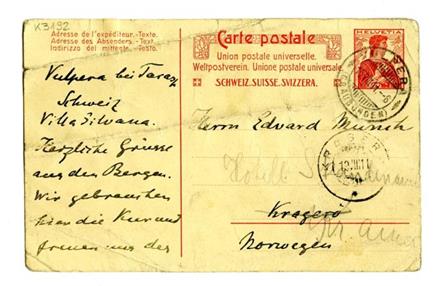 K3192
Adresse de l'expéditeur.-Texte.
Adresse des Absenders.-Text.
Indirizzo del mittente.-Testo.
Carte postale
Union postale universelle.
Weltpostverein. Unione postale universale.
SCHWEIZ. SUISSE. SVIZZERA.
HELVETIA
(GRAUBÜNDEN)
Vulpera bei Tarasp
Schweiz
Villa Silvana.
Herzliche Grüsse
aus den Bergen.
Wir gebrauchen
hier die Kur und
freuen uns der
Herrn Edvard Munch
Hotell
Kragerø
Norwegen